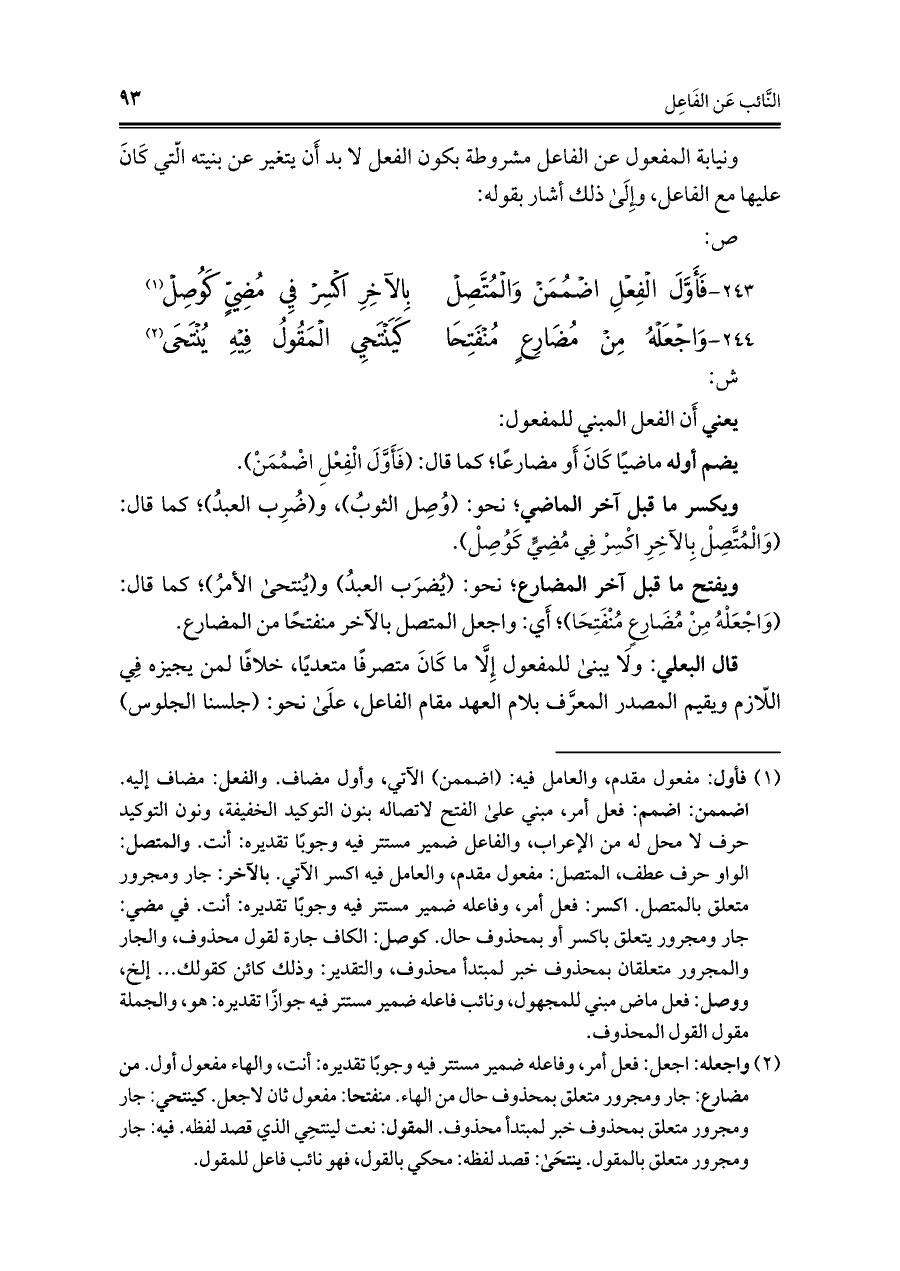 النَّائب عَن الفَاعِل ٩٣
ونيابة المفعول عن الفاعل مشروطة بكون الفعل لا بد أَن يتغير عن بنيته الّتي كَانَ
عليها مع الفاعل، وإِلَىٰ ذلك أشار بقوله:
ص:
٢٤٣-فَأَوَّلَ الْفِعْلِ اضْمُمَنْ وَالْمُتَّصِلْ بِالآخِرِ اكْسِرْ فِي مُضِيٍّ كَوُصِلْ(١)
٢٤٤-وَاجْعَلْهُ مِنْ مُضَارِعٍ مُنْفَتِحَا كَيَنْتَحِي الْمَقُولُ فِيْهِ يُنْتَحَى(٢)
ش:
يعني أَن الفعل المبني للمفعول:
يضم أوله ماضيًا كَانَ أَو مضارعًا؛ كما قال: (فَأَوَّلَ الْفِعْلِ اضْمُمَنْ).
ويكسر ما قبل آخر الماضي؛ نحو: (وُصِل الثوبُ)، و(ضُرِب العبدُ)؛ كما قال:
(وَالْمُتَّصِلْ بِالآخِرِ اكْسِرْ فِي مُضِيٍّ كَوُصِلْ).
ويفتح ما قبل آخر المضارع؛ نحو: (يُضرَب العبدُ) و(يُنتحىٰ الأمرُ)؛ كما قال:
(وَاجْعَلْهُ مِنْ مُضَارِعٍ مُنْفَتِحَا)؛ أَي: واجعل المتصل بالآخر منفتحًا من المضارع.
قال البعلي: ولَا يبنىٰ للمفعول إِلَّا ما كَانَ متصرفًا متعديًا، خلافًا لمن يجيزه فِي
اللّازم ويقيم المصدر المعرَّف بلام العهد مقام الفاعل، علَىٰ نحو: (جلسنا الجلوس)
(١) فأول: مفعول مقدم، والعامل فيه: (اضممن) الآتي، وأول مضاف. والفعل: مضاف إليه.
اضممن: اضمم: فعل أمر، مبني علىٰ الفتح لاتصاله بنون التوكيد الخفيفة، ونون التوكيد
حرف لا محل له من الإعراب، والفاعل ضمير مستتر فيه وجوبًا تقديره: أنت. والمتصل:
الواو حرف عطف، المتصل: مفعول مقدم، والعامل فيه اكسر الآتي. بالآخر: جار ومجرور
متعلق بالمتصل. اكسر: فعل أمر، وفاعله ضمير مستتر فيه وجوبًا تقديره: أنت. في مضي:
جار ومجرور يتعلق باكسر أو بمحذوف حال. كوصل: الكاف جارة لقول محذوف، والجار
والمجرور متعلقان بمحذوف خبر لمبتدأ محذوف، والتقدير: وذلك كائن كقولك... إلخ،
ووصل: فعل ماض مبني للمجهول، ونائب فاعله ضمير مستتر فيه جوازًا تقديره: هو، والجملة
مقول القول المحذوف.
(٢) واجعله: اجعل: فعل أمر، وفاعله ضمير مستتر فيه وجوبًا تقديره: أنت، والهاء مفعول أول. من
مضارع: جار ومجرور متعلق بمحذوف حال من الهاء. منفتحا: مفعول ثان لاجعل. كينتحي: جار
ومجرور متعلق بمحذوف خبر لمبتدأ محذوف. المقول: نعت لينتحِي الذي قصد لفظه. فيه: جار
ومجرور متعلق بالمقول. ينتحَىٰ: قصد لفظه: محكي بالقول، فهو نائب فاعل للمقول.